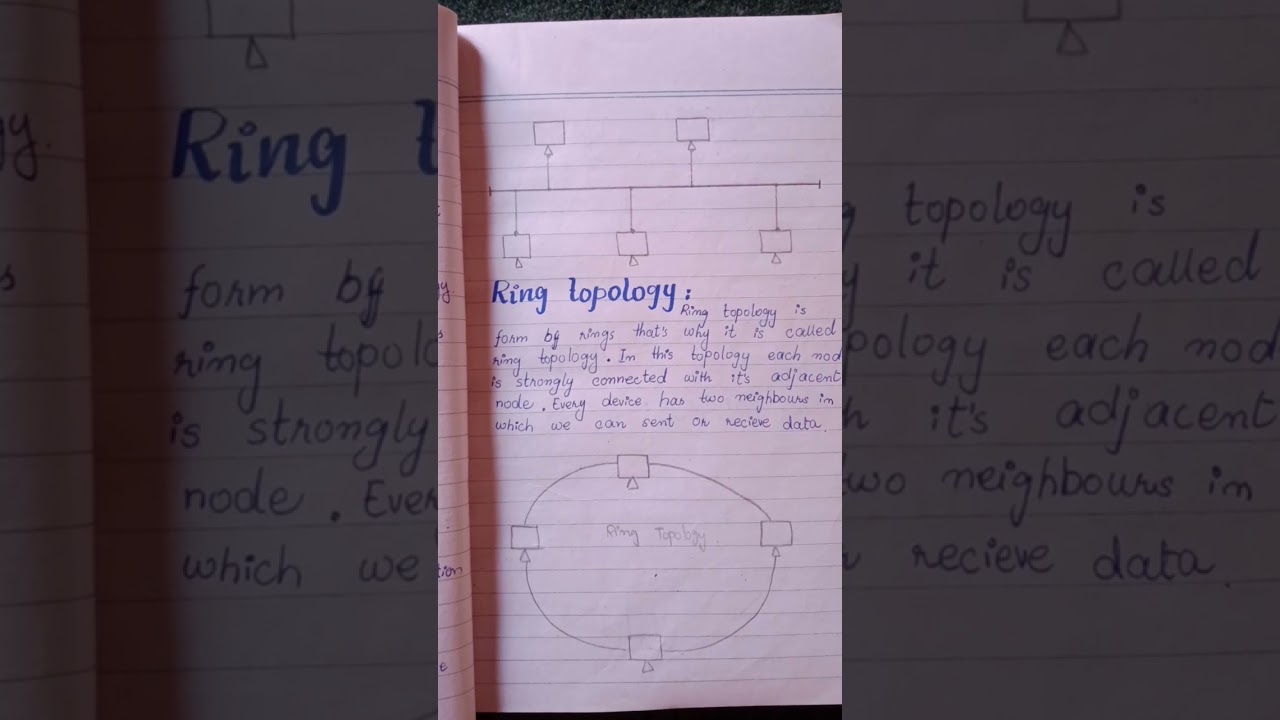 Ring topology:
Ring topology is
form by rings that's why it is called
ring topology. In this topology each nod
is strongly connected with it's adjacent
node. Every device has two neighbours in
which we can sent or recieve data.
Ring Topology